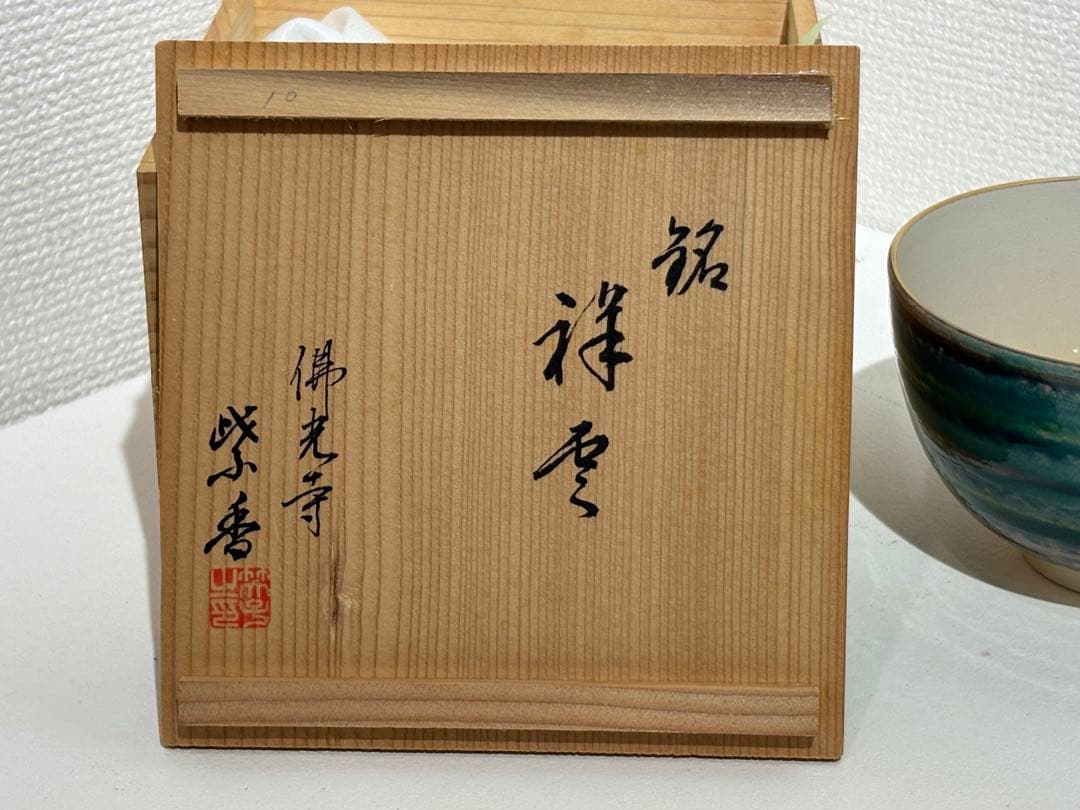 10
銘
祥雲
佛光寺
紫香